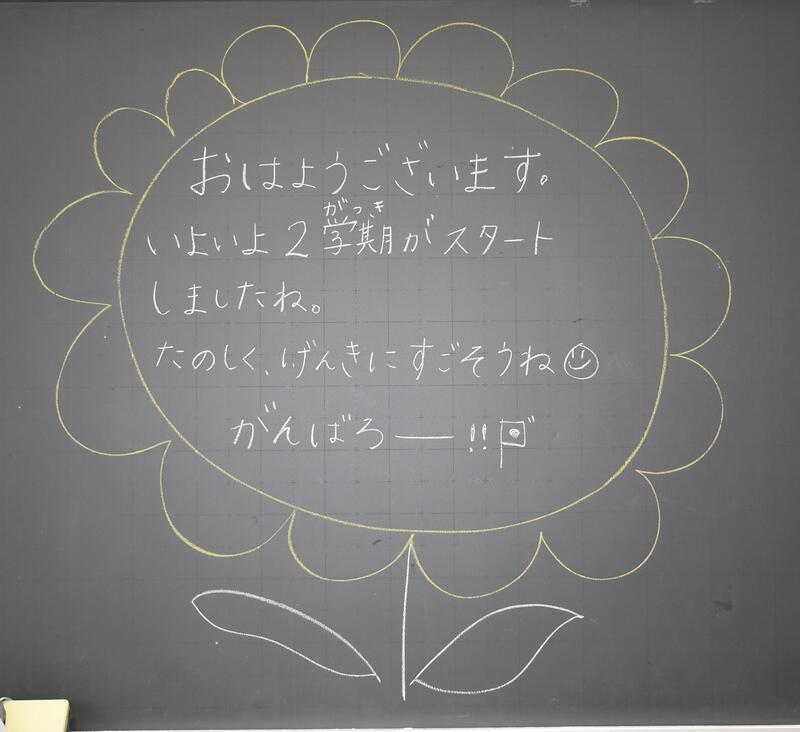 おはようございます。
がっき
いよいよ2学期がスタート
しましたね。
たのしく、げんきにすごそうね
がんばろー!!